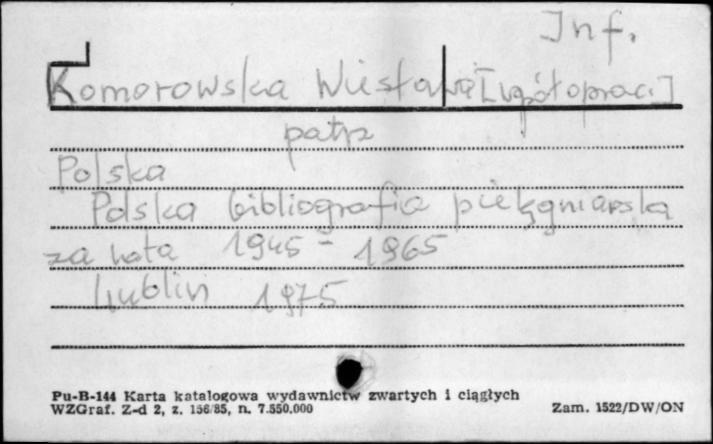 Inf.
Komorowska Wiesława [współoprac.]
patrz
Polska
Polska bibliografia pielęgniarska
za lata 1945 - 1965
Lublin 1975
Pu-B-144 Karta katalogowa wydawnictw zwartych i ciągłych
WZGraf. Z-d 2, z. 156/85, n. 7.550.000
Zam. 1522/DW/ON